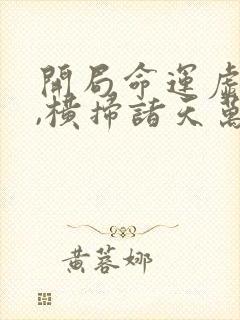 開局命運
,橫掃諸天萬
黃蓉娜